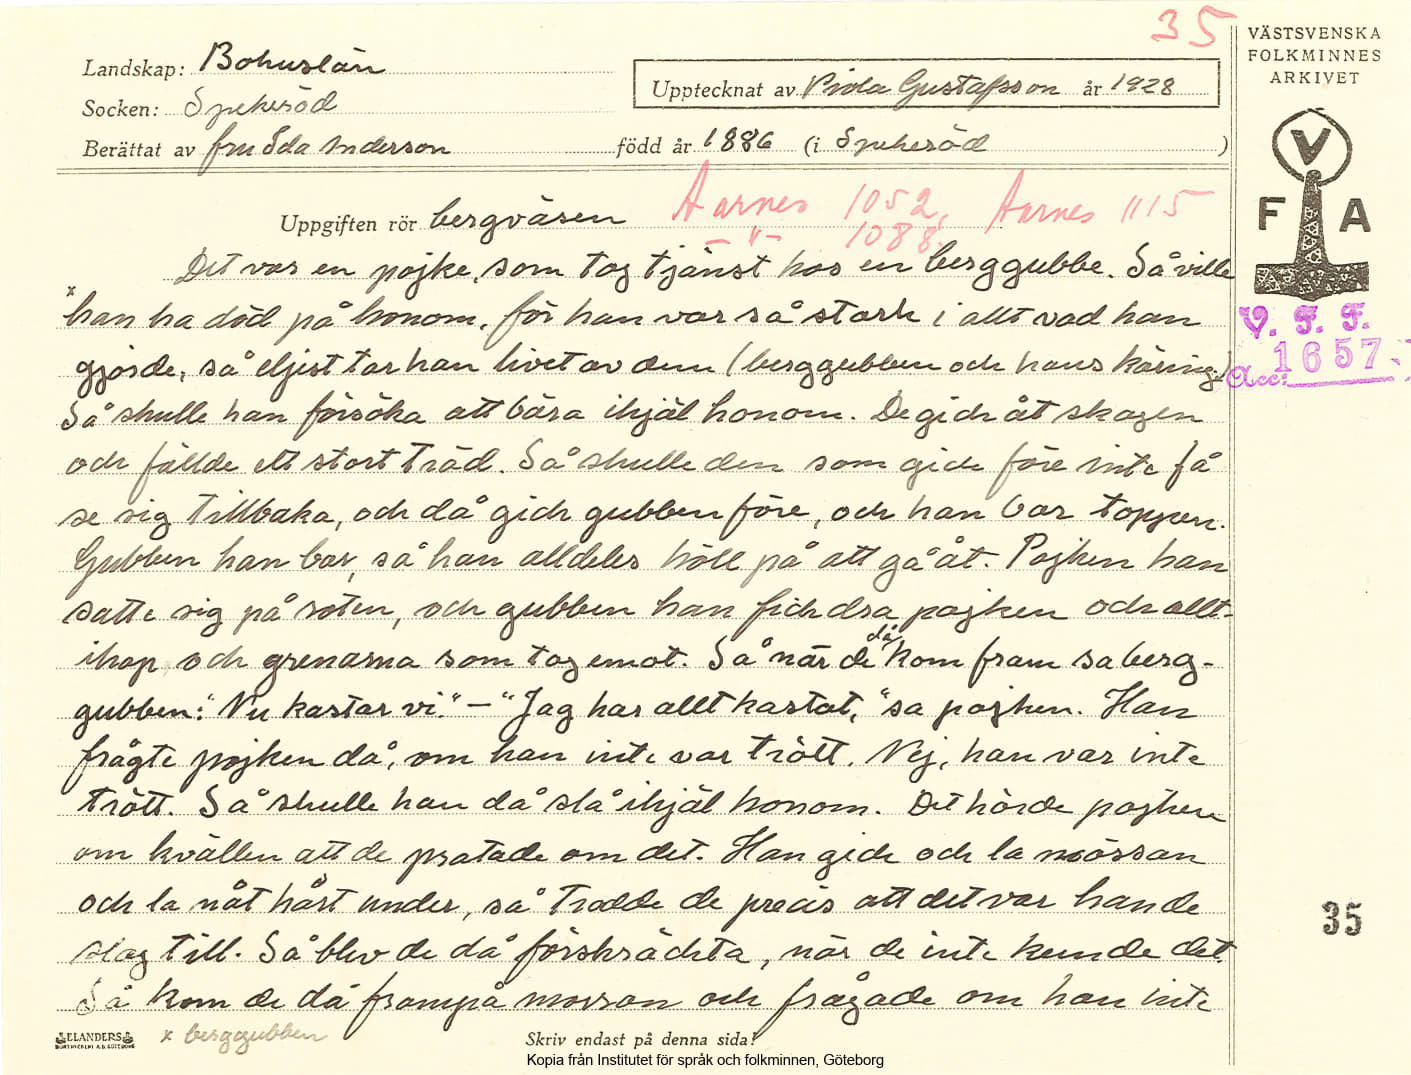 35
VÄSTSVENSKA
FOLKMINNES
ARKIVET
Landskap: Bohuslän
Upptecknat av Viola Gustafsson år 1928
Socken: Spekeröd
Berättat av fru Ida Anderson född år 1886 (i Spekeröd )
V
F A
Uppgiften rör bergväsen Aarnes 1052, Aarnes 1115
— " — 1088.
Det var en pojke, som tog tjänst hos en berggubbe. Så ville
x han ha död på honom, för han var så stark i allt vad han
gjorde, så eljest tar han livet av dem (berggubben och hans käring.)
Så skulle han försöka att bära ihjäl honom. De gick åt skogen
och fällde ett stort träd. Så skulle den som gick före inte få
se sig tillbaka, och då gick gubben före, och han bar toppen.
Gubben han bar, så han alldeles höll på att gå åt. Pojken han
satte sig på roten, och gubben han fick dra pojken och allt-
ihop och grenarna som tog emot. Så när de då kom fram sa berg-
gubben: "Nu kastar vi." — "Jag har allt kastat," sa pojken. Han
frågte pojken då, om han inte var trött. Nej, han var inte
trött. Så skulle han då slå ihjäl honom. Det hörde pojken
om kvällen att de pratade om det. Han gick och la mössan
och la nåt hårt under, så trodde de precis att det var han de
slog till. Så blev de då förskräckta, när de inte kunde det.
Så kom de då frampå morron och frågade om han inte
V. F. F.
Acc: 1657
35
ELANDERS
BOKTRYCKERI A.B. GÖTEBORG
x berggubben
Skriv endast på denna sida!
Kopia från Institutet för språk och folkminnen, Göteborg